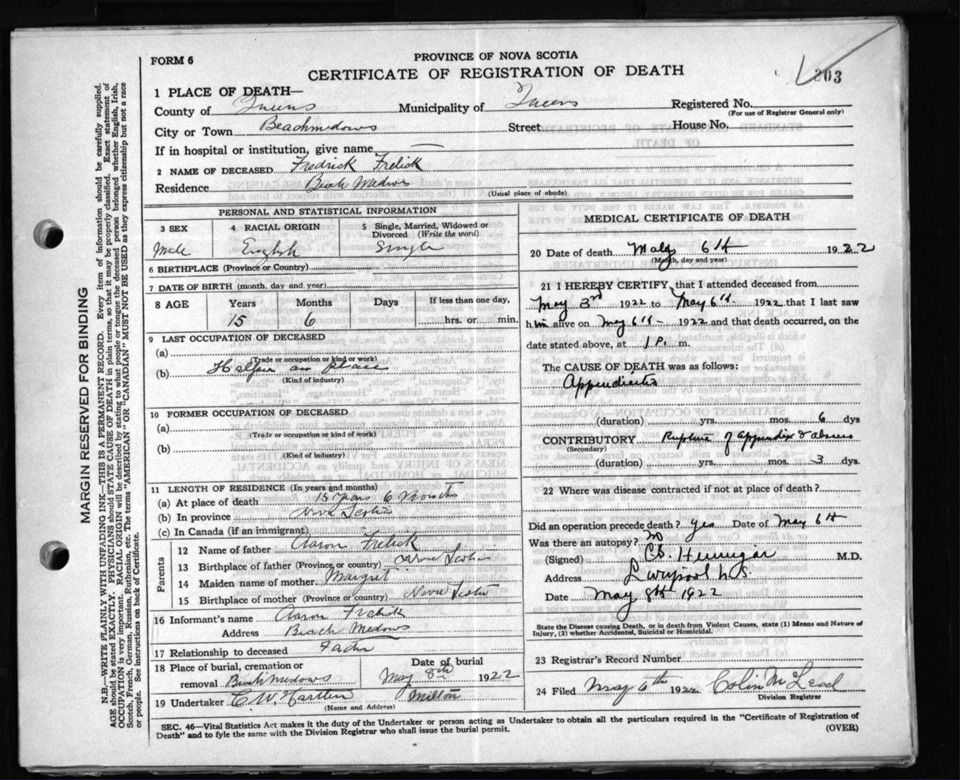 203
FORM 6
PROVINCE OF NOVA SCOTIA
CERTIFICATE OF REGISTRATION OF DEATH
1 PLACE OF DEATH—
County of Queens Municipality of Queens Registered No.
(For use of Registrar General only)
City or Town Beachmedows Street House No.
If in hospital or institution, give name —
2 NAME OF DECEASED Fredrick Frelick
Residence Beach Medows
(Usual place of abode)
PERSONAL AND STATISTICAL INFORMATION
3 SEX 4 RACIAL ORIGIN 5 Single, Married, Widowed or Divorced (Write the word)
Male English Single
6 BIRTHPLACE (Province or Country)
7 DATE OF BIRTH (month, day and year)
8 AGE Years Months Days If less than one day,
15 6 hrs. or min.
9 LAST OCCUPATION OF DECEASED
(a)
(Trade or occupation or kind or work)
(b) on place
(Kind of industry)
10 FORMER OCCUPATION OF DECEASED
(a)
(Trade or occupation or kind of work)
(b)
(Kind of industry)
11 LENGTH OF RESIDENCE (In years and months)
(a) At place of death 15 years 6 months
(b) In province Nova Scotia
(c) In Canada (if an immigrant)
Parents
12 Name of father Aaron Frelick
13 Birthplace of father (Province or country) Nova Scotia
14 Maiden name of mother Margret
15 Birthplace of mother (Province or country) Nova Scotia
16 Informant's name Aaron Frelick
Address Beach Medows
17 Relationship to deceased Father
18 Place of burial, cremation or Date of burial
removal Beachmedows May 8th 1922
19 Undertaker C W Milton
(Name and Address)
MEDICAL CERTIFICATE OF DEATH
20 Date of death May 6th 1922
(Month, day and year)
21 I HEREBY CERTIFY, that I attended deceased from
May 3rd 1922 to May 6th 1922 that I last saw
him alive on May 6th 1922 and that death occurred, on the
date stated above, at 1 P. m.
The CAUSE OF DEATH was as follows:
Appendicitis
(duration) yrs. mos. 6 dys
CONTRIBUTORY Rupture of appendix & abscess
(Secondary)
(duration) yrs. mos. 3 dys.
22 Where was disease contracted if not at place of death?
Did an operation precede death? Yes Date of May 6th
Was there an autopsy? No
(Signed) Hennigar M.D.
Address Liverpool N.S.
Date May 8th 1922
State the Disease causing Death, or in death from Violent Causes, state (1) Means and Nature of
Injury, (2) whether Accidental, Suicidal or Homicidal.
23 Registrar's Record Number
24 Filed May 6th 1922 Colin McLeod
Division Registrar
SEC. 46—Vital Statistics Act makes it the duty of the Undertaker or person acting as Undertaker to obtain all the particulars required in the "Certificate of Registration of
Death" and to fyle the same with the Division Registrar who shall issue the burial permit. (OVER)
MARGIN RESERVED FOR BINDING
N.B.—WRITE PLAINLY WITH UNFADING INK—THIS IS A PERMANENT RECORD. Every item of information should be carefully supplied.
AGE should be stated EXACTLY. PHYSICIANS should STATE CAUSE OF DEATH in plain terms, so that it may be properly classified. Exact statement of
OCCUPATION is very important. RACIAL ORIGIN will be described by stating to what people or tongue the deceased person belonged whether English, Irish,
Scotch, French, German, Russian, Ruthenian, etc. The terms "AMERICAN" or "CANADIAN" MUST NOT BE USED as they express citizenship but not a race
or people. See instructions on back of Certificate.